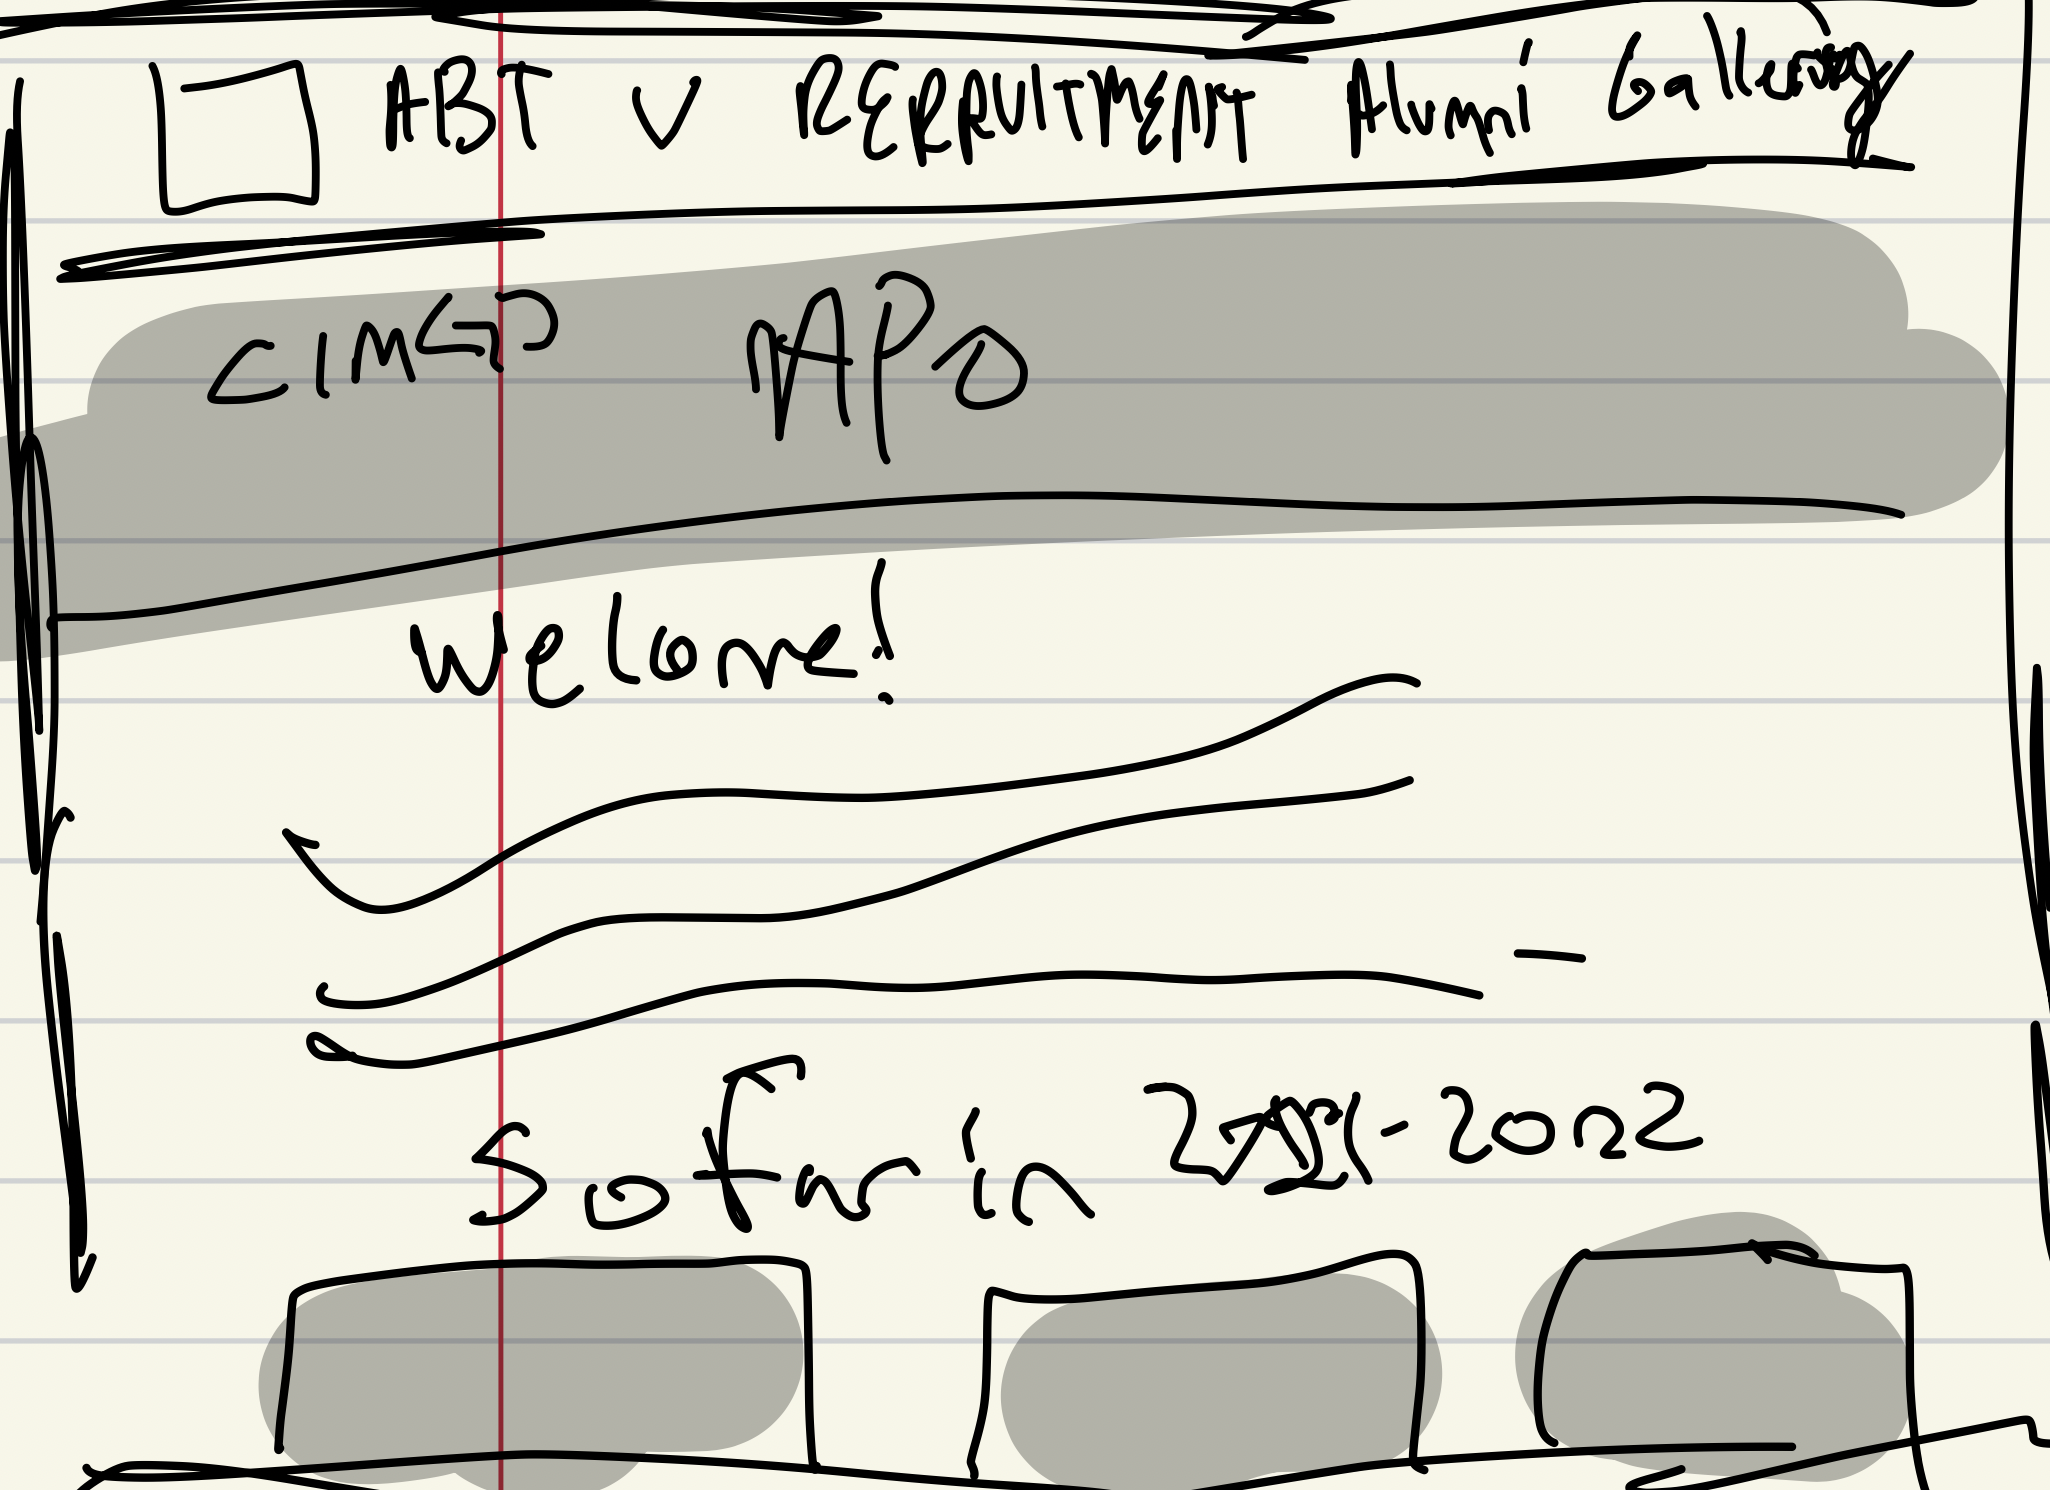 ABT V RECRUITMENT Alumni Gallery
APO
Welcome!
So far in - 2022